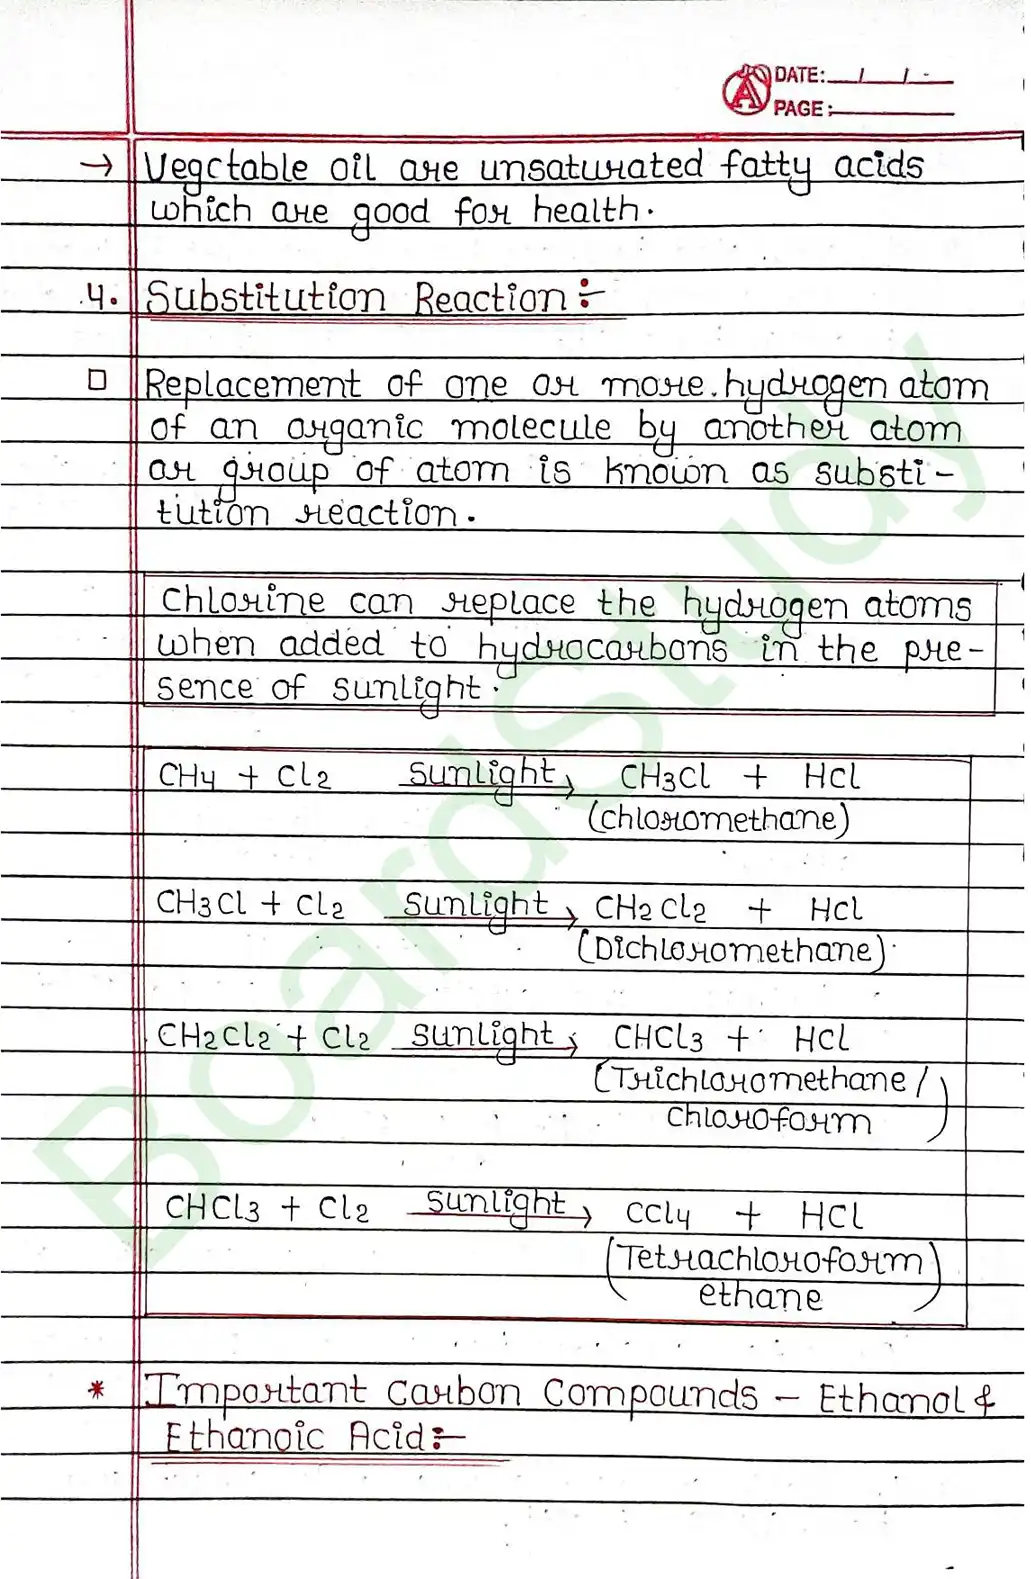 DATE: / /
PAGE:
→ Vegetable oil are unsaturated fatty acids
which are good for health.
4. Substitution Reaction:-
□ Replacement of one or more hydrogen atom
of an organic molecule by another atom
or group of atom is known as substi-
tution reaction.
Chlorine can replace the hydrogen atoms
when added to hydrocarbons in the pre-
sence of sunlight.
CH4 + Cl2 sunlight→ CH3Cl + HCl
(chloromethane)
CH3Cl + Cl2 sunlight→ CH2Cl2 + HCl
(Dichloromethane)
CH2Cl2 + Cl2 sunlight→ CHCl3 + HCl
(Trichloromethane/
chloroform)
CHCl3 + Cl2 sunlight→ CCl4 + HCl
(Tetrachloroform
ethane)
* Important Carbon Compounds - Ethanol &
Ethanoic Acid:-
BoardStudy